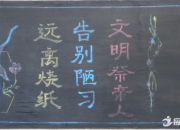 文明祭亲人
告别陋习
远离烧纸